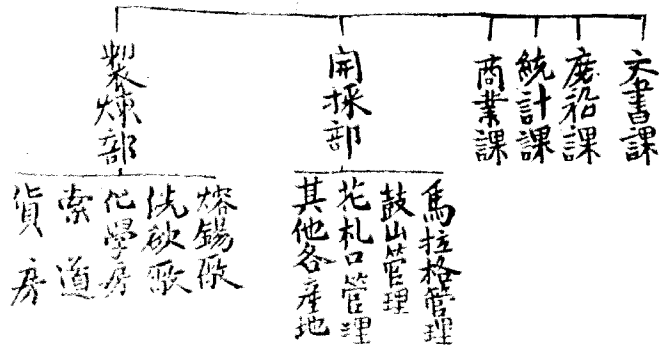 文書課
庶務課
統計課
商業課
開採部
馬拉格管理
鼓山管理
花札口管理
其他各産地
製煉部
熔錫厰
洗砂厰
化學房
索道
貨房